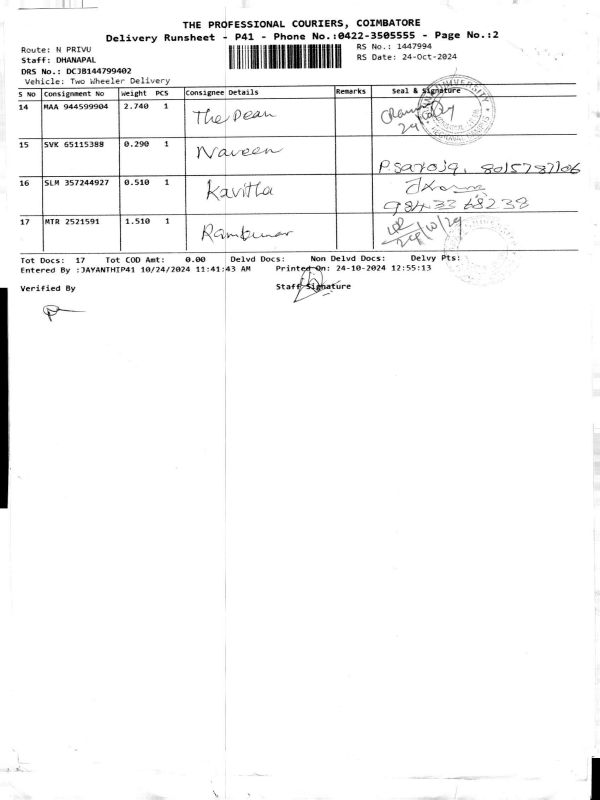 THE PROFESSIONAL COURIERS, COIMBATORE
Delivery Runsheet - P41 - Phone No.:0422-3505555 - Page No.:2
Route: N PRIVU
RS No.: 1447994
Staff: DHANAPAL
RS Date: 24-Oct-2024
DRS No.: DCJB144799402
Vehicle: Two Wheeler Delivery
S No Consignment No Weight PCS Consignee Details Remarks Seal & Signature
14 MAA 944599904 2.740 1 The Dean
15 SVK 65115388 0.290 1 Naveen P. Saroja, 8015787106
16 SLM 357244927 0.510 1 Kavitha 9843368238
17 MTR 2521591 1.510 1 Ramkumar 24/10/24
Tot Docs: 17 Tot COD Amt: 0.00 Delvd Docs: Non Delvd Docs: Delvy Pts:
Entered By :JAYANTHIP41 10/24/2024 11:41:43 AM Printed On: 24-10-2024 12:55:13
Verified By Staff Signature